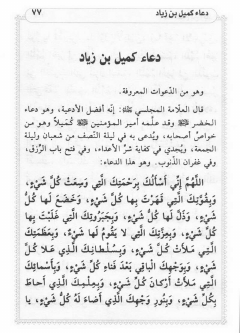 دعاء كميل بن زياد ٧٧
دعاء كميل بن زياد
وهو من الدّعوات المعروفة.
قال العلّامة المجلسي ﷺ: إنّه أفضل الأدعية، وهو دعاء
الخضر ﷺ وقد علّمه أمير المؤمنين ﷺ كُميلاً وهو من
خواصّ أصحابه، ويُدعى به في ليلة النّصف من شعبان وليلة
الجمعة، ويُجدي في كفاية شرّ الأعداء، وفي فتح باب الرّزق،
وفي غفران الذّنوب. وهو هذا الدعاء:
اللَّهُمَّ إِنِّي أَسْأَلُكَ بِرَحْمَتِكَ الَّتِي وَسِعَتْ كُلَّ شَيْءٍ،
وَبِقُوَّتِكَ الَّتِي قَهَرْتَ بِهَا كُلَّ شَيْءٍ، وَخَضَعَ لَهَا كُلُّ
شَيْءٍ، وَذَلَّ لَهَا كُلُّ شَيْءٍ، وَبِجَبَرُوتِكَ الَّتِي غَلَبْتَ بِهَا
كُلَّ شَيْءٍ، وَبِعِزَّتِكَ الَّتِي لَا يَقُومُ لَهَا شَيْءٌ، وَبِعَظَمَتِكَ
الَّتِي مَلَأَتْ كُلَّ شَيْءٍ، وَبِسُلْطَانِكَ الَّذِي عَلَا كُلَّ
شَيْءٍ، وَبِوَجْهِكَ الْبَاقِي بَعْدَ فَنَاءِ كُلِّ شَيْءٍ، وَبِأَسْمَائِكَ
الَّتِي مَلَأَتْ أَرْكَانَ كُلِّ شَيْءٍ، وَبِعِلْمِكَ الَّذِي أَحَاطَ
بِكُلِّ شَيْءٍ، وَبِنُورِ وَجْهِكَ الَّذِي أَضَاءَ لَهُ كُلُّ شَيْءٍ، يَا